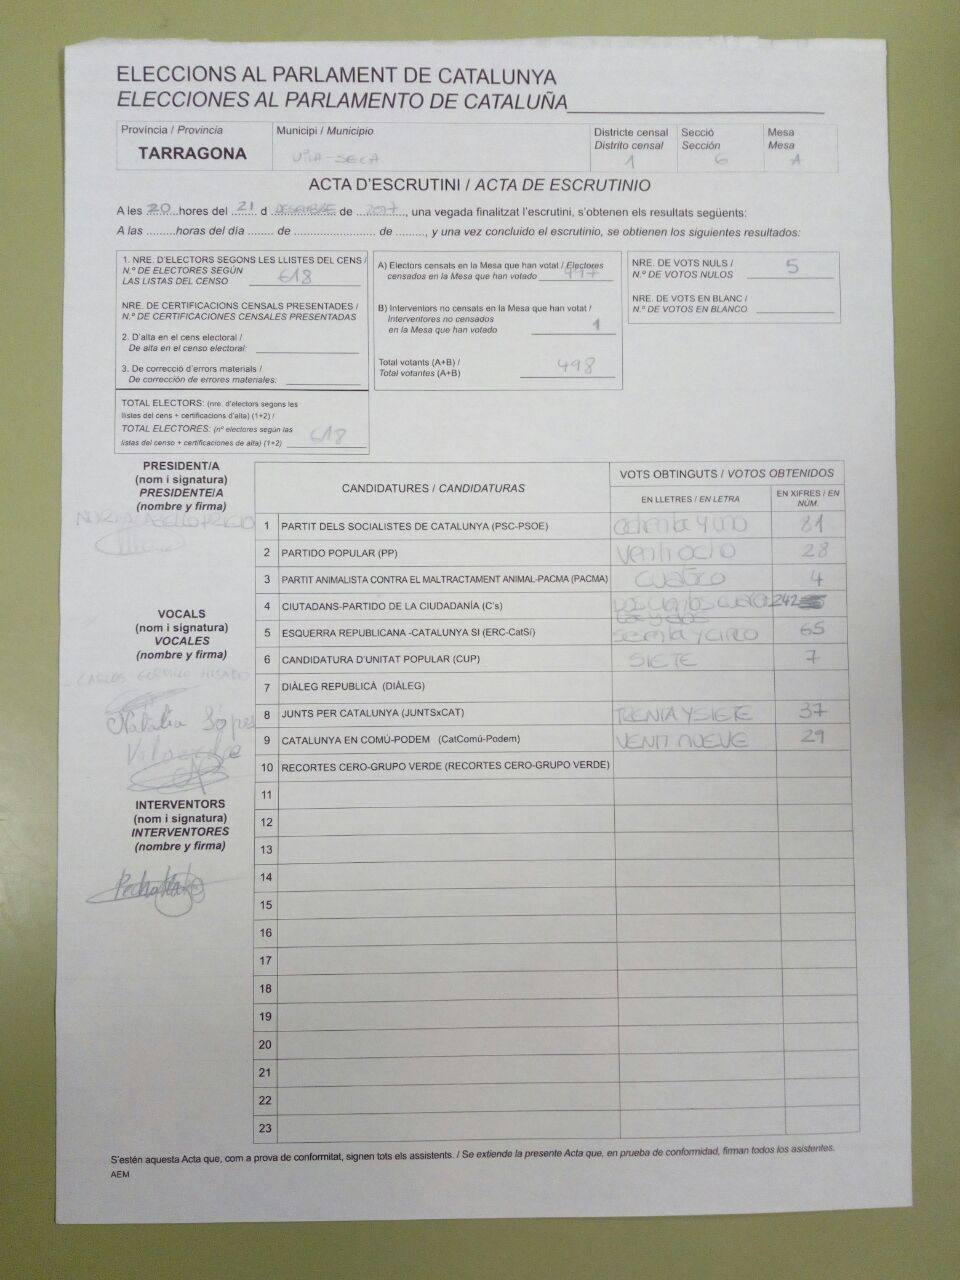 ELECCIONS AL PARLAMENT DE CATALUNYA
ELECCIONES AL PARLAMENTO DE CATALUÑA
Província / Provincia
TARRAGONA
Municipi / Municipio
VILA-SECA
Districte censal
Distrito censal
1
Secció
Sección
6
Mesa
Mesa
A
ACTA D'ESCRUTINI / ACTA DE ESCRUTINIO
A les 20 hores del 21 d DESEMBRE de 2017, una vegada finalitzat l'escrutini, s'obtenen els resultats següents:
A las .........horas del día ........ de ........................ de ........., y una vez concluido el escrutinio, se obtienen los siguientes resultados:
1. NRE. D'ELECTORS SEGONS LES LLISTES DEL CENS /
N.º DE ELECTORES SEGÚN
LAS LISTAS DEL CENSO 618
NRE. DE CERTIFICACIONS CENSALS PRESENTADES /
N.º DE CERTIFICACIONES CENSALES PRESENTADAS
2. D'alta en el cens electoral /
De alta en el censo electoral:
3. De correcció d'errors materials /
De corrección de errores materiales:
TOTAL ELECTORS: (nre. d'electors segons les
llistes del cens + certificacions d'alta) (1+2) /
TOTAL ELECTORES: (nº electores según las
listas del censo + certificaciones de alta) (1+2) 618
A) Electors censats en la Mesa que han votat / Electores
censados en la Mesa que han votado 497
B) Interventors no censats en la Mesa que han votat /
Interventores no censados
en la Mesa que han votado 1
Total votants (A+B) /
Total votantes (A+B) 498
NRE. DE VOTS NULS /
N.º DE VOTOS NULOS 5
NRE. DE VOTS EN BLANC /
N.º DE VOTOS EN BLANCO
PRESIDENT/A
(nom i signatura)
PRESIDENTE/A
(nombre y firma)
VOCALS
(nom i signatura)
VOCALES
(nombre y firma)
CARLOS
Natalia López
INTERVENTORS
(nom i signatura)
INTERVENTORES
(nombre y firma)
CANDIDATURES / CANDIDATURAS
VOTS OBTINGUTS / VOTOS OBTENIDOS
EN LLETRES / EN LETRA
EN XIFRES / EN NÚM.
1 PARTIT DELS SOCIALISTES DE CATALUNYA (PSC-PSOE) ochenta y uno 81
2 PARTIDO POPULAR (PP) ventiocho 28
3 PARTIT ANIMALISTA CONTRA EL MALTRACTAMENT ANIMAL-PACMA (PACMA) cuatro 4
4 CIUTADANS-PARTIDO DE LA CIUDADANÍA (C's) Dos cientos cuaren ta y dos 242
5 ESQUERRA REPUBLICANA -CATALUNYA SI (ERC-CatSí) sesenta y cinco 65
6 CANDIDATURA D'UNITAT POPULAR (CUP) SIETE 7
7 DIÀLEG REPUBLICÀ (DIÀLEG)
8 JUNTS PER CATALUNYA (JUNTSxCAT) TRENTA Y SIETE 37
9 CATALUNYA EN COMÚ-PODEM (CatComú-Podem) VENTI NUEVE 29
10 RECORTES CERO-GRUPO VERDE (RECORTES CERO-GRUPO VERDE)
11
12
13
14
15
16
17
18
19
20
21
22
23
S'estén aquesta Acta que, com a prova de conformitat, signen tots els assistents. / Se extiende la presente Acta que, en prueba de conformidad, firman todos los asistentes.
AEM